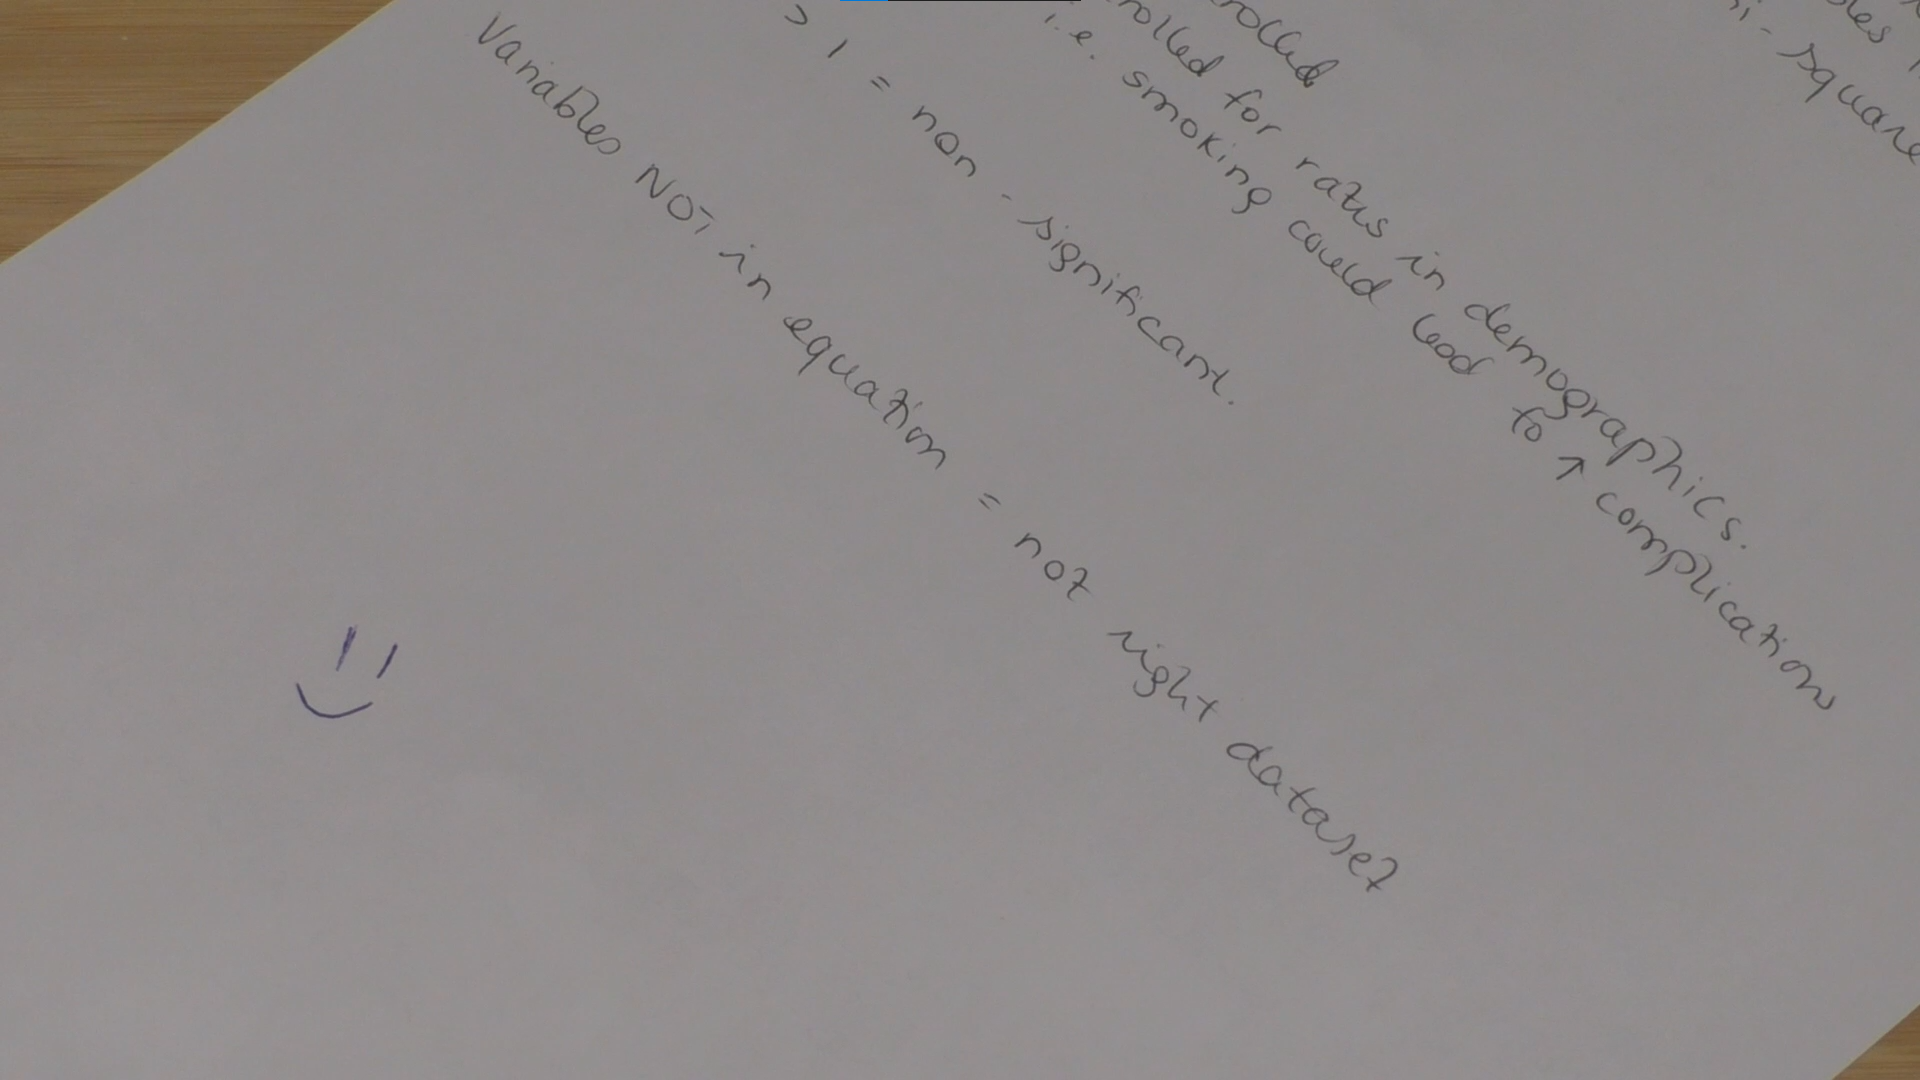 - square
rolled
rolled for rates in demographics.
i.e. smoking could lead to ↑ complications
> 1 = non - significant.
Variables NOT in equation = not right dataset